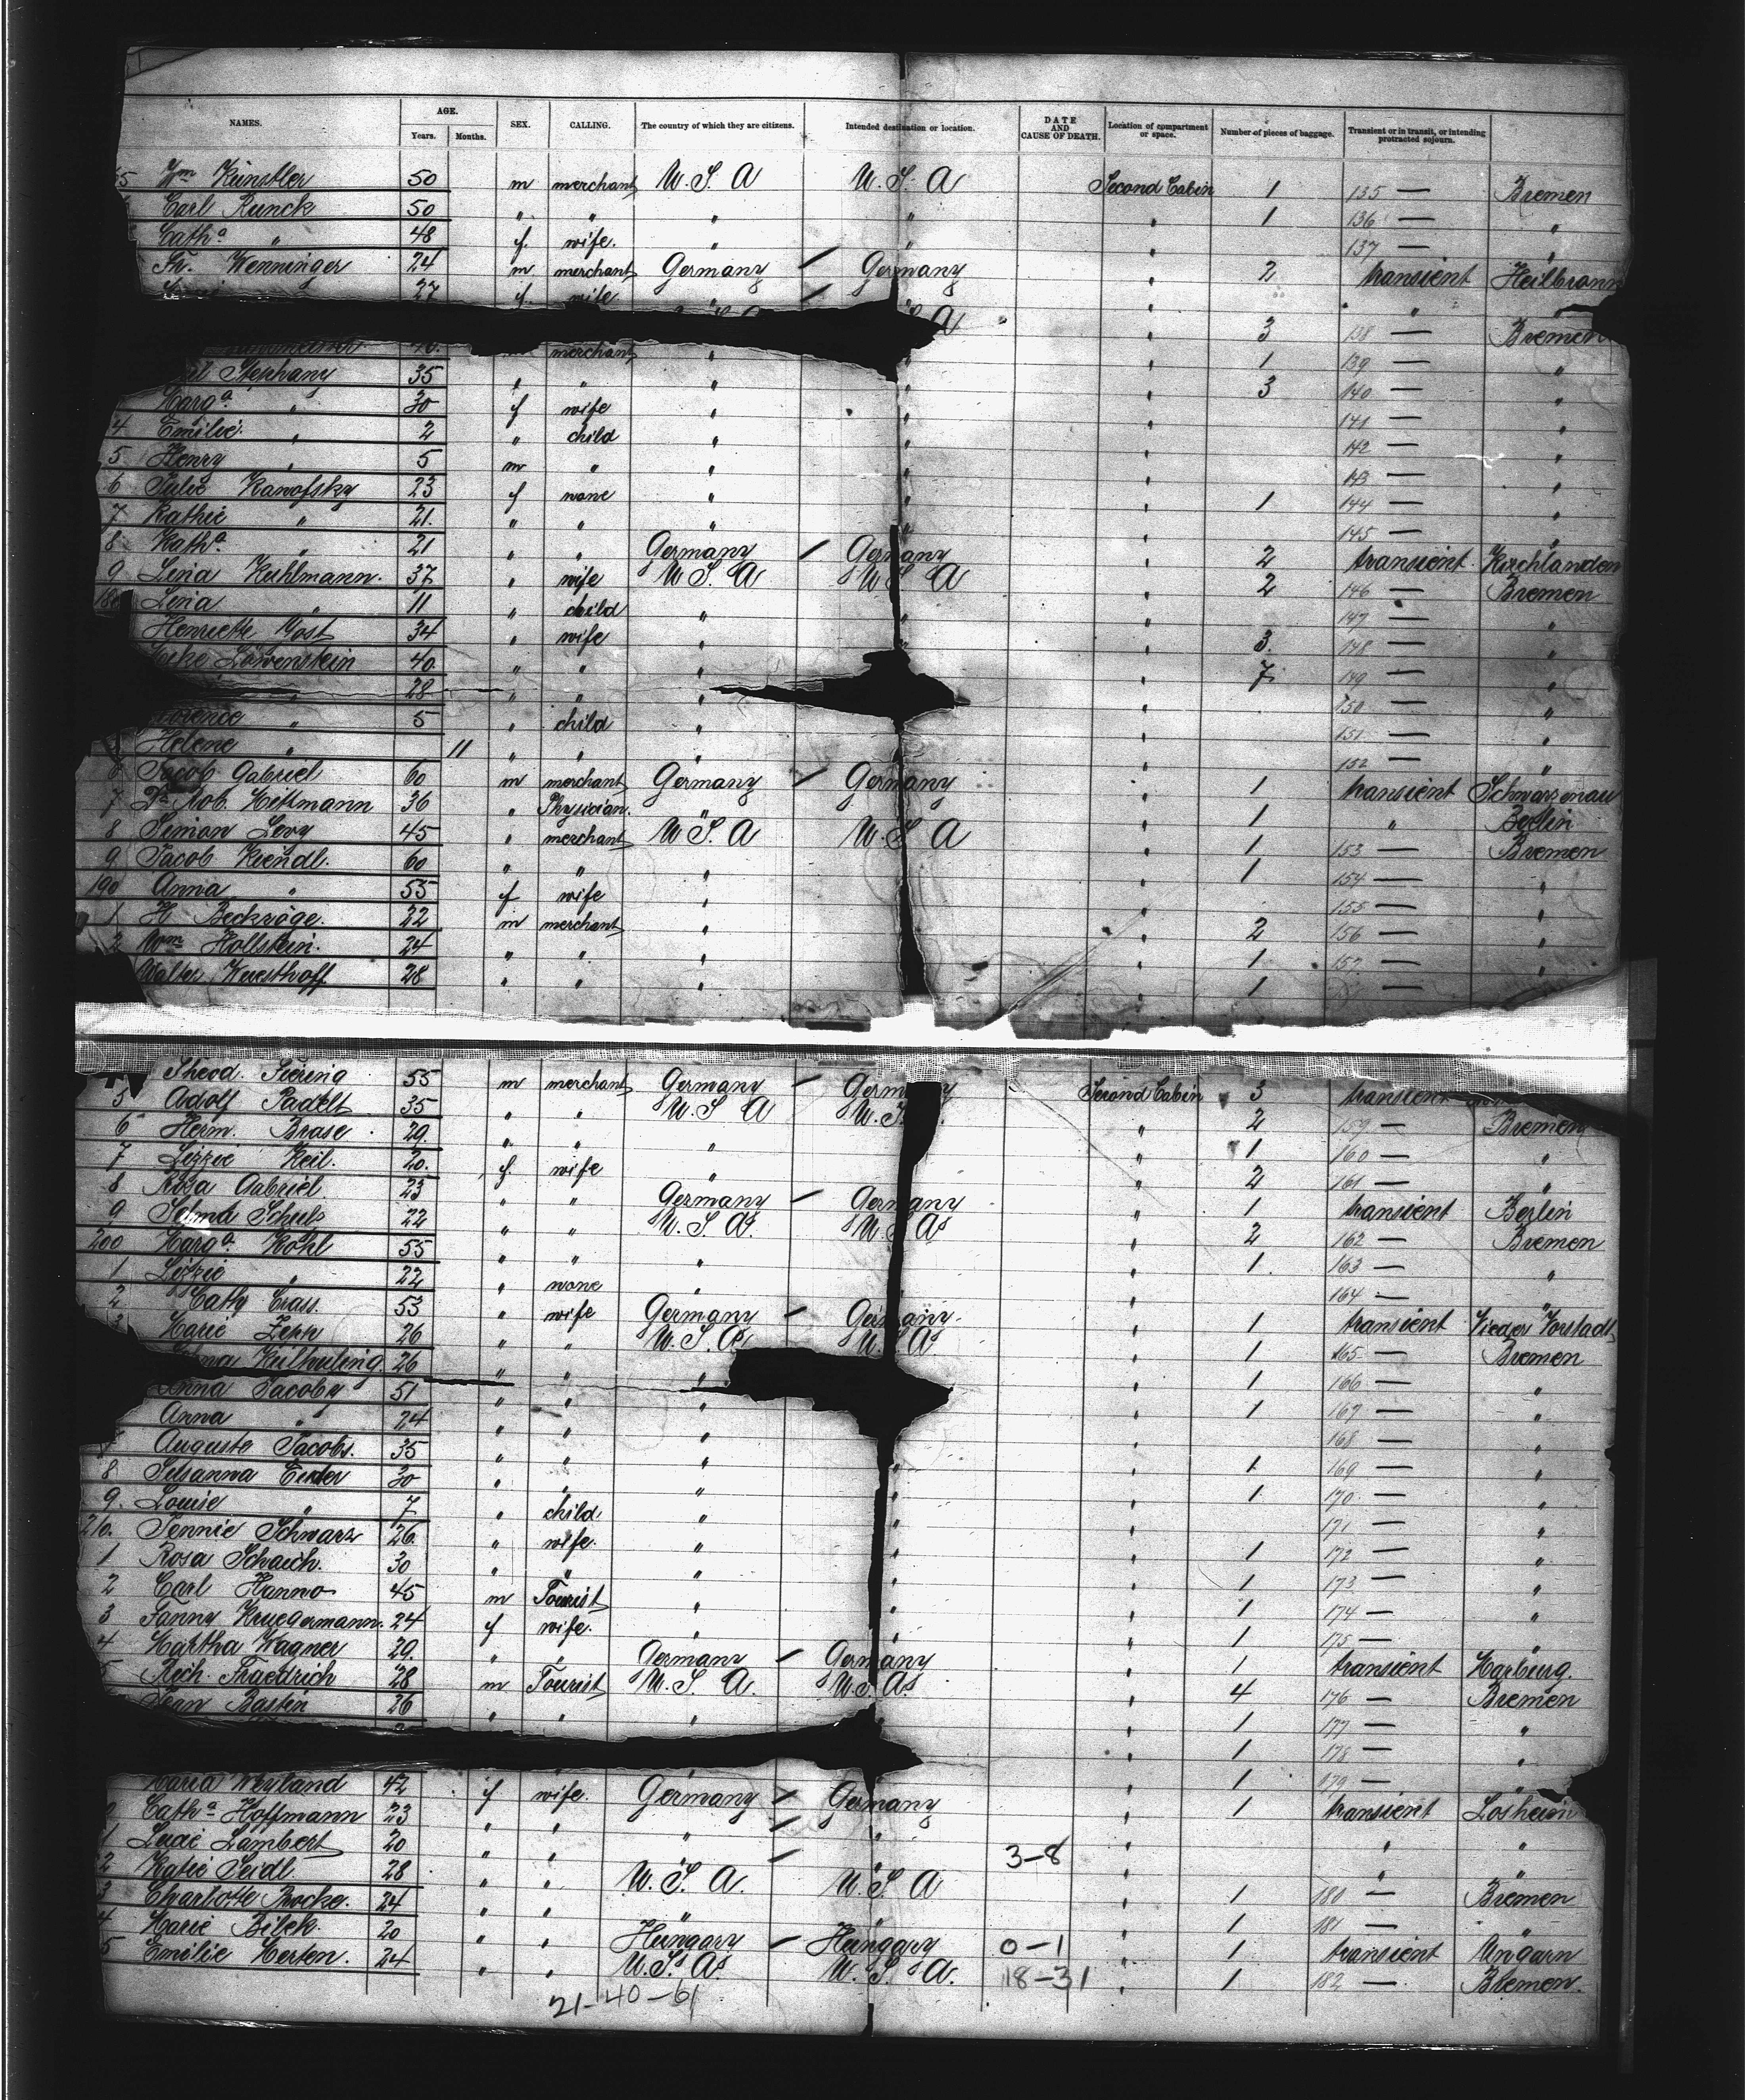 NAMES. AGE. Years. Months. SEX. CALLING. The country of which they are citizens. Intended destination or location. DATE AND CAUSE OF DEATH. Location of compartment or space. Number of pieces of baggage. Transient or in transit, or intending protracted sojourn.
5 Wm Künstler 50 m merchant U. S. A U. S. A Second Cabin 1 135 — Bremen
Carl Runck 50 " " " " " 1 136 — "
Catha " 48 f. wife. " " " 137 — "
Fr. Wenninger 24 m merchant Germany / Germany " 2 transient Heilbronn
27 f. wife " / " " "
A " 3 138 — Bremen
40. merchant " " " 1 139 — "
Stephany 35 " " " " " 3 140 — "
Marga " 30 f wife " " " 141 — "
4 Emilie " 2 " child " " " 142 — "
5 Henry " 5 m " " " " 143 — "
6 Julie Kanofsky 23 f none " " " 1 144 — "
7 Kathie " 21. " " " " " 145 — "
8 Katha " 21 " " Germany / Germany " 2 transient Kirchlanden
9 Lina Kuhlmann. 37 " wife U S. A U S A " 2 146 — Bremen
180 Lina " 11 " child " " " 147 — "
Henriette Yost 34 " wife " " " 3. 148 — "
Löwenstein 40 " " " " 7. 149 — "
" 28 " " " " 150 — "
Florence " 5 " child " " 151 — "
Helene " 11 " " " " " 152 — "
6 Jacob Gabriel 60 m merchant Germany / Germany " 1 transient Schwarzenau
7 Dr Rob. Hittmann 36 " Physician. " " 1 " Berlin
8 Simon Levy 45 " merchant U S. A U. S A " 1 153 — Bremen
9 Jacob Kiendl. 60 " " " " 1 154 — "
190 Anna " 55 f wife " " 155 — "
1 H Beckröge. 22 m merchant " " 2 156 — "
2 Wm Hollstein. 24 " " " " 1 157 — "
Walter Wuesthoff 28 " " " " 1 —
Theod. Fiering 55 m merchant Germany / Germany Second Cabin 3 transient
5 Adolf Padelt 35 " " U. S A U. S. " 2 159 — Bremen
6 Herm. Brase 29. " " " " 1 160 — "
7 Lizzie Keil. 20. f. wife " 2 161 — "
8 Rosa Gabriel 23 " " Germany / Germany " 1 transient Berlin
9 Selma Schulz 22 " " U. S. A. U S A " 2 162 — Bremen
200 Marga Kohl 55 " " " " 1. 163 — "
1 Lizzie " 22 " none " " 164 — "
2 Cath Crass. 53 " wife Germany / Germany. " 1 transient Nieder Vorstadt
3 Marie Zepp 26 " " U. S. A. U. S A " 1 165 — Bremen
26 " " " " 1 166 — "
Anna Jacoby 51 " " " " 1 167 — "
Anna " 24 " " " " 168 — "
7 Auguste Jacobs. 35 " " " " " 1 169 — "
8 Susanna Euler 30 " " " " " 1 170 — "
9. Louise " 7 " child " " " 171 — "
210. Jennie Schwarz 26. " wife. " " " 1 172 — "
1 Rosa Schaich. 30 " " " " " 1 173 — "
2 Carl Hanno 45 m Tourist " " " 1 174 — "
3 Fanny Kruegermann. 24 f wife. " " " 1 175 — "
4 Martha Wagner 29. " " Germany / Germany " 1 transient Harburg.
5 Rich. Fraedrich 28 m Tourist U. S. A. U. S. A. " 4 176 — Bremen
Jean Bastin 26 " " " " " 1 177 — "
" 1 178 — "
Maria Weyland 42 f wife. Germany / Germany " 1 179 — "
Catha Hoffmann 23 " " " / " " 1 transient Losheim
1 Lucie Lambert 20 " " " / " 3-8 " " "
2 Katie Seidl 28 " " U. S. A. U. S. A " " "
3 Charlotte Bocke. 24 " " " " " 1 180 — Bremen
4 Marie Bilek. 20 " " Hungary / Hungary 0-1 " 1 181 — "
5 Emilie Herten. 24 " " U. S. A. U. S. A. 18-31 " 1 transient Ungarn
21-40-61 1 182 — Bremen.